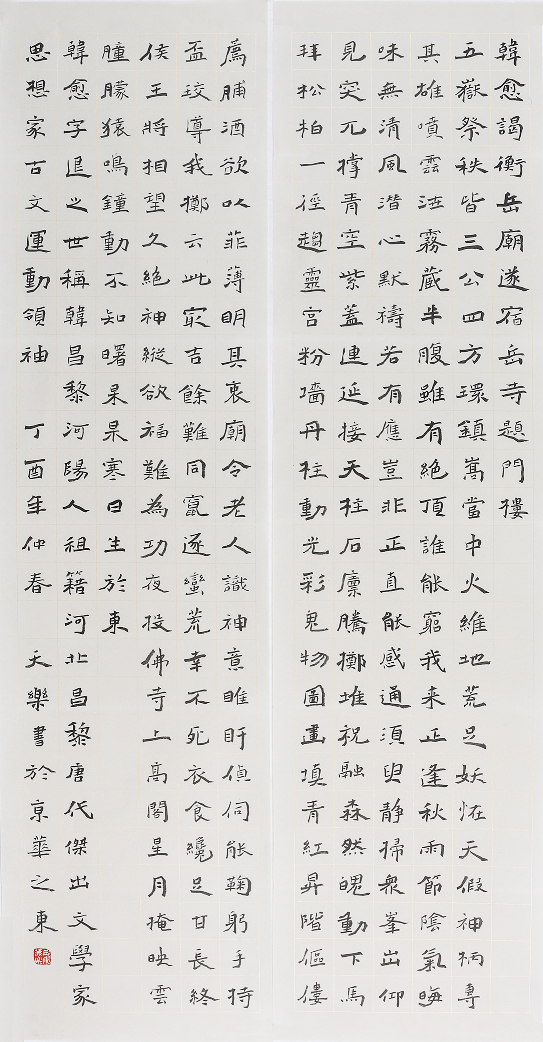 韓愈謁衡岳廟遂宿岳寺題門樓
五嶽祭秩皆三公四方環鎮嵩當中火維地荒足妖恠天假神柄專
其雄噴雲泄霧藏半腹雖有絕頂誰能窮我来正逢秋雨節陰氣晦
昧無清風潛心默禱若有應豈非正直能感通須臾靜掃衆峯出仰
見突兀撐青空紫蓋連延接天柱石廩騰擲堆祝融森然魄動下馬
拜松柏一徑趨靈宮粉墻丹柱動光彩鬼物圖畫填青紅昇階傴僂
薦脯酒欲以菲薄明其衷廟令老人識神意睢盱偵伺能鞠躬手持
盃珓導我擲云此冣吉餘難同竄逐蠻荒幸不死衣食纔足甘長終
侯王將相望久絕神縱欲福難為功夜投佛寺上高閣星月掩映雲
朣朦猿鳴鐘動不知曙杲杲寒日生於東
韓愈字退之世稱韓昌黎河陽人祖籍河北昌黎唐代傑出文學家
思想家古文運動領袖 丁酉年仲春 天樂書於京華之東